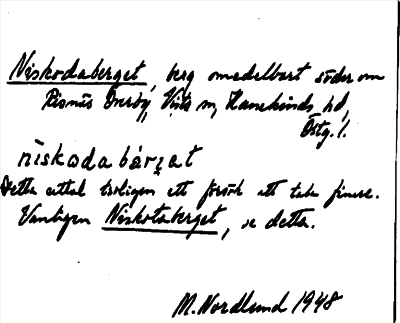 Niskodaberget, berg omedelbart söder om
Risnäs Överby, Västra n, Hanekinds hd,
Östg. l.
nìskodabár̥at
Detta uttal troligen ett försök att tala finare.
Vanligen Niskotaberget, se detta.
M. Nordlund 1948